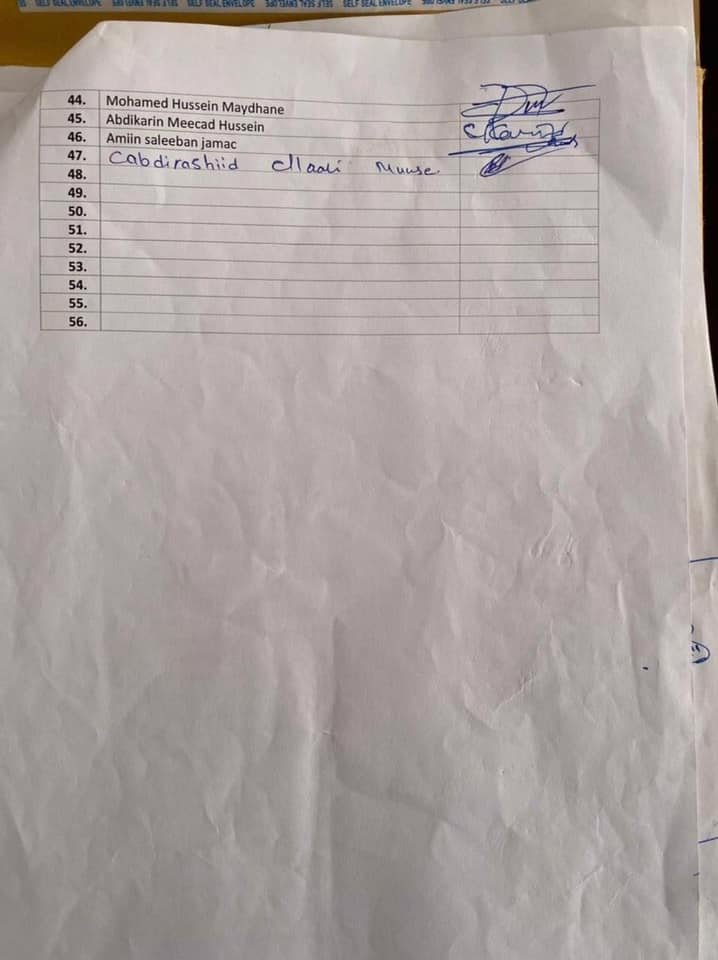 SELF SEAL ENVELOPE SELF SEAL ENVELOPE SELF SEAL ENVELOPE SELF SEAL ENVELOPE SELF SEAL ENVELOPE
44. Mohamed Hussein Maydhane
45. Abdikarin Meecad Hussein
46. Amiin saleeban jamac
47. Cabdirashiid Muuse
48.
49.
50.
51.
52.
53.
54.
55.
56.